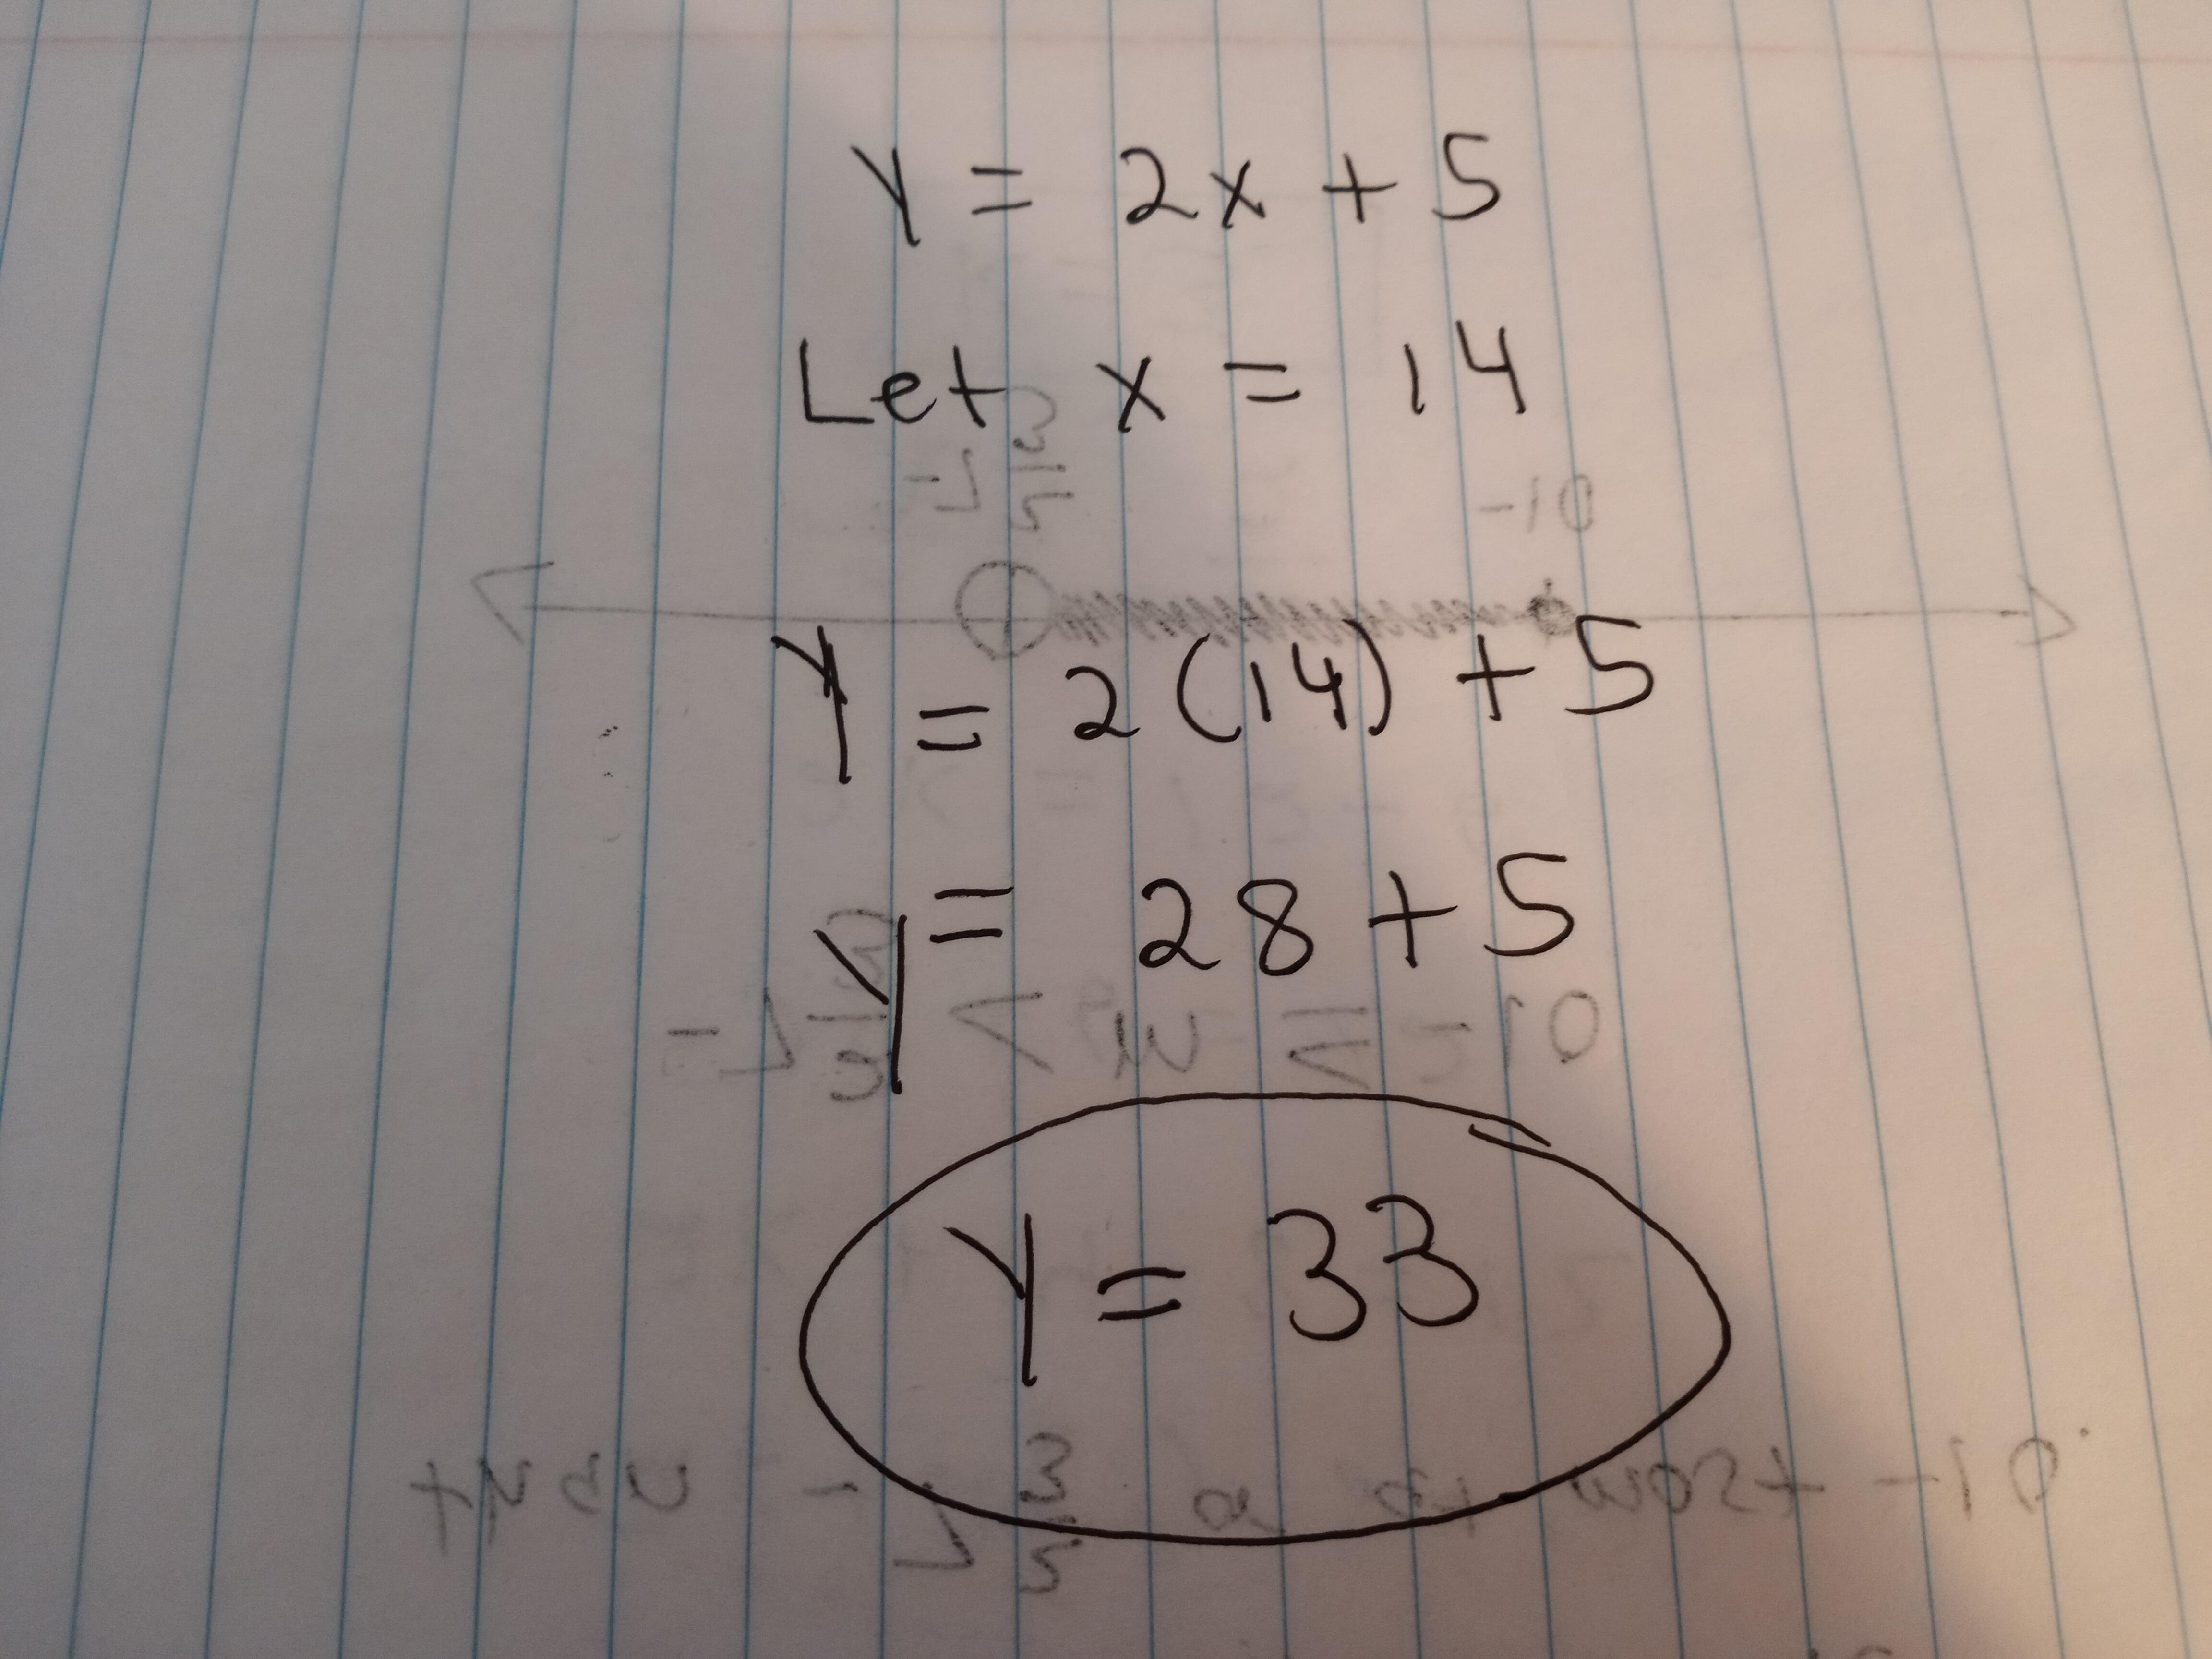 Y = 2x + 5
Let x = 14
-10
Y = 2(14) + 5
Y = 28 + 5
Y = 33